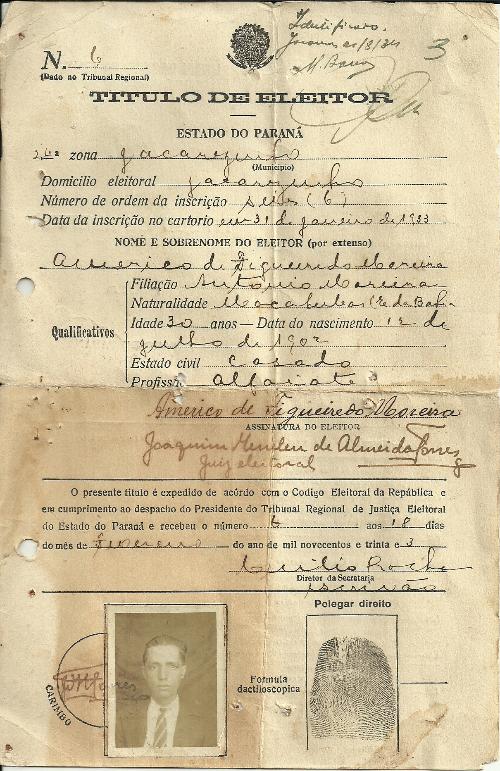 Identificado.
N. 6
(Dado no Tribunal Regional)
3
TITULO DE ELEITOR
ESTADO DO PARANÁ
zona Jacarezinho
(Municipio)
Domicilio eleitoral Jacarezinho
Número de ordem da inscrição seis (6)
Data da inscrição no cartorio em 31 de janeiro de 1933
NOME E SOBRENOME DO ELEITOR (por extenso)
Americo de Figueiredo Moreira
Qualificativos
Filiação Antônio Moreira
Naturalidade Macahubas E. da Bahia
Idade 30 anos — Data do nascimento 12 de
julho de 1902
Estado civil Casado
Profissão Alfaiate
Americo de Figueiredo Moreira
ASSINATURA DO ELEITOR
Joaquim de Almeida Torres
Juiz eleitoral
O presente titulo é expedido de acôrdo com o Codigo Eleitoral da República e
em cumprimento ao despacho do Presidente do Tribunal Regional de Justiça Eleitoral
do Estado do Paraná e recebeu o número 6 aos 18 dias
do mês de Fevereiro do ano de mil novecentos e trinta e 3
Diretor da Secretaria
escrivão
Polegar direito
CARIMBO
Formula
dactiloscopica